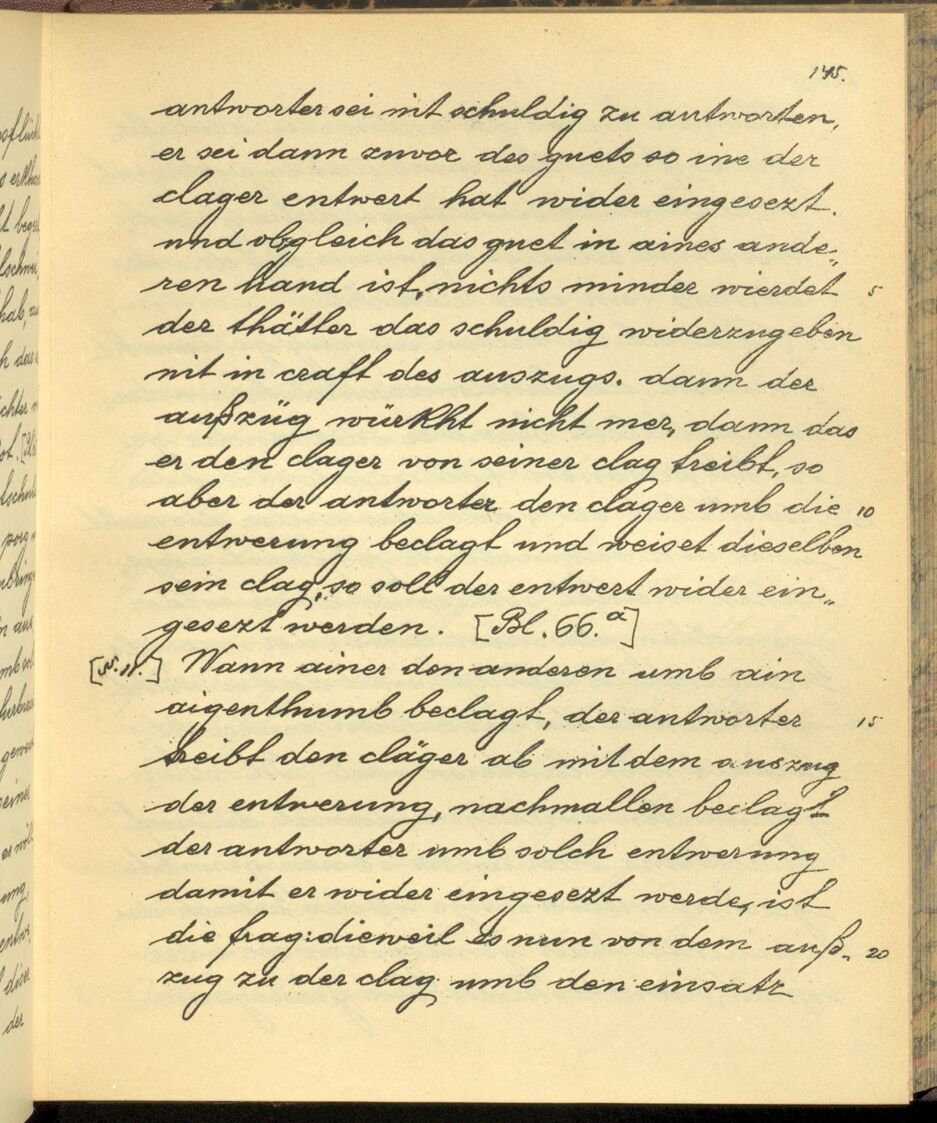 145.
antworter sei nit schuldig zu antworten,
er sei dann zuvor des guets so ine der
clager entwert hat wider eingesezt.
und obgleich das guet in aines ande„
ren hand ist, nichts minder wierdet 5
der thätter das schuldig widerzugeben
nit in craft des auszugs. dann der
außzüg würkht nicht mer, dann das
er den clager von seiner clag treibt, so
aber der antworter den clager umb die 10
entwerung beclagt und weiset dieselben
sein clag, so soll der entwert wider ein„
gesezt werden. [Bl. 66.a]
[N. 11.] Wann ainer den anderen umb ain
aigenthumb beclagt, der antworter 15
treibt den cläger ab mit dem auszug
der entwerung, nachmallen beclagt
der antworter umb solch entwerung
damit er wider eingesezt werde, ist
die frag: dieweil es nun von dem auß„ 20
zug zu der clag umb den einsatz